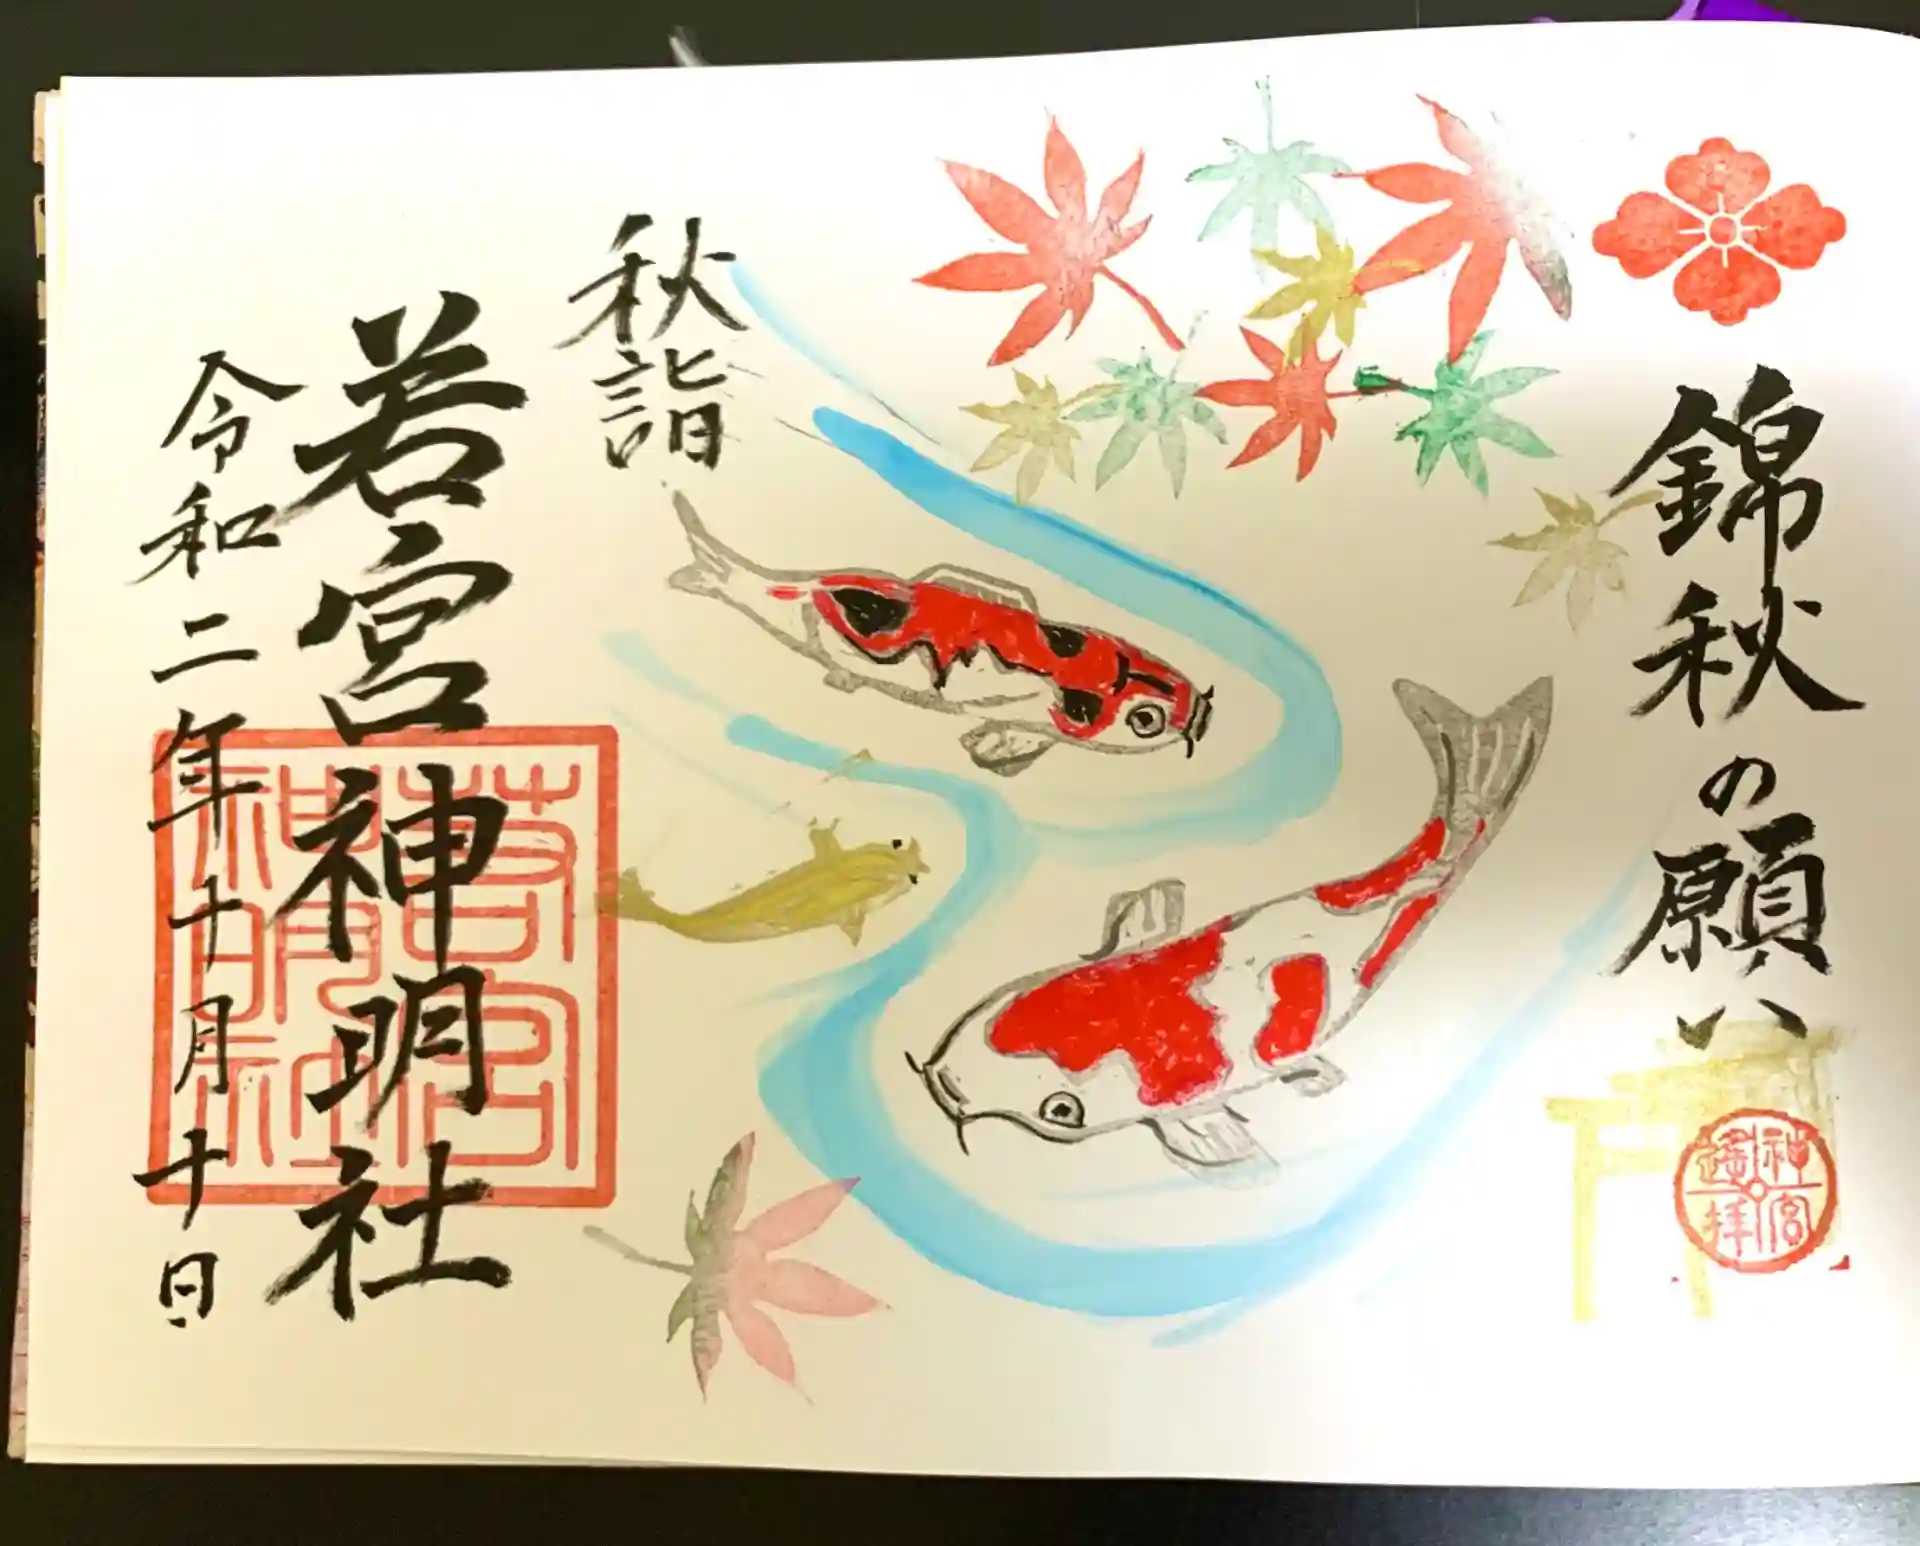 錦秋の願い
神宮
遥拝
秋詣
若宮神明社
若宮
神明社
令和二年十月十日